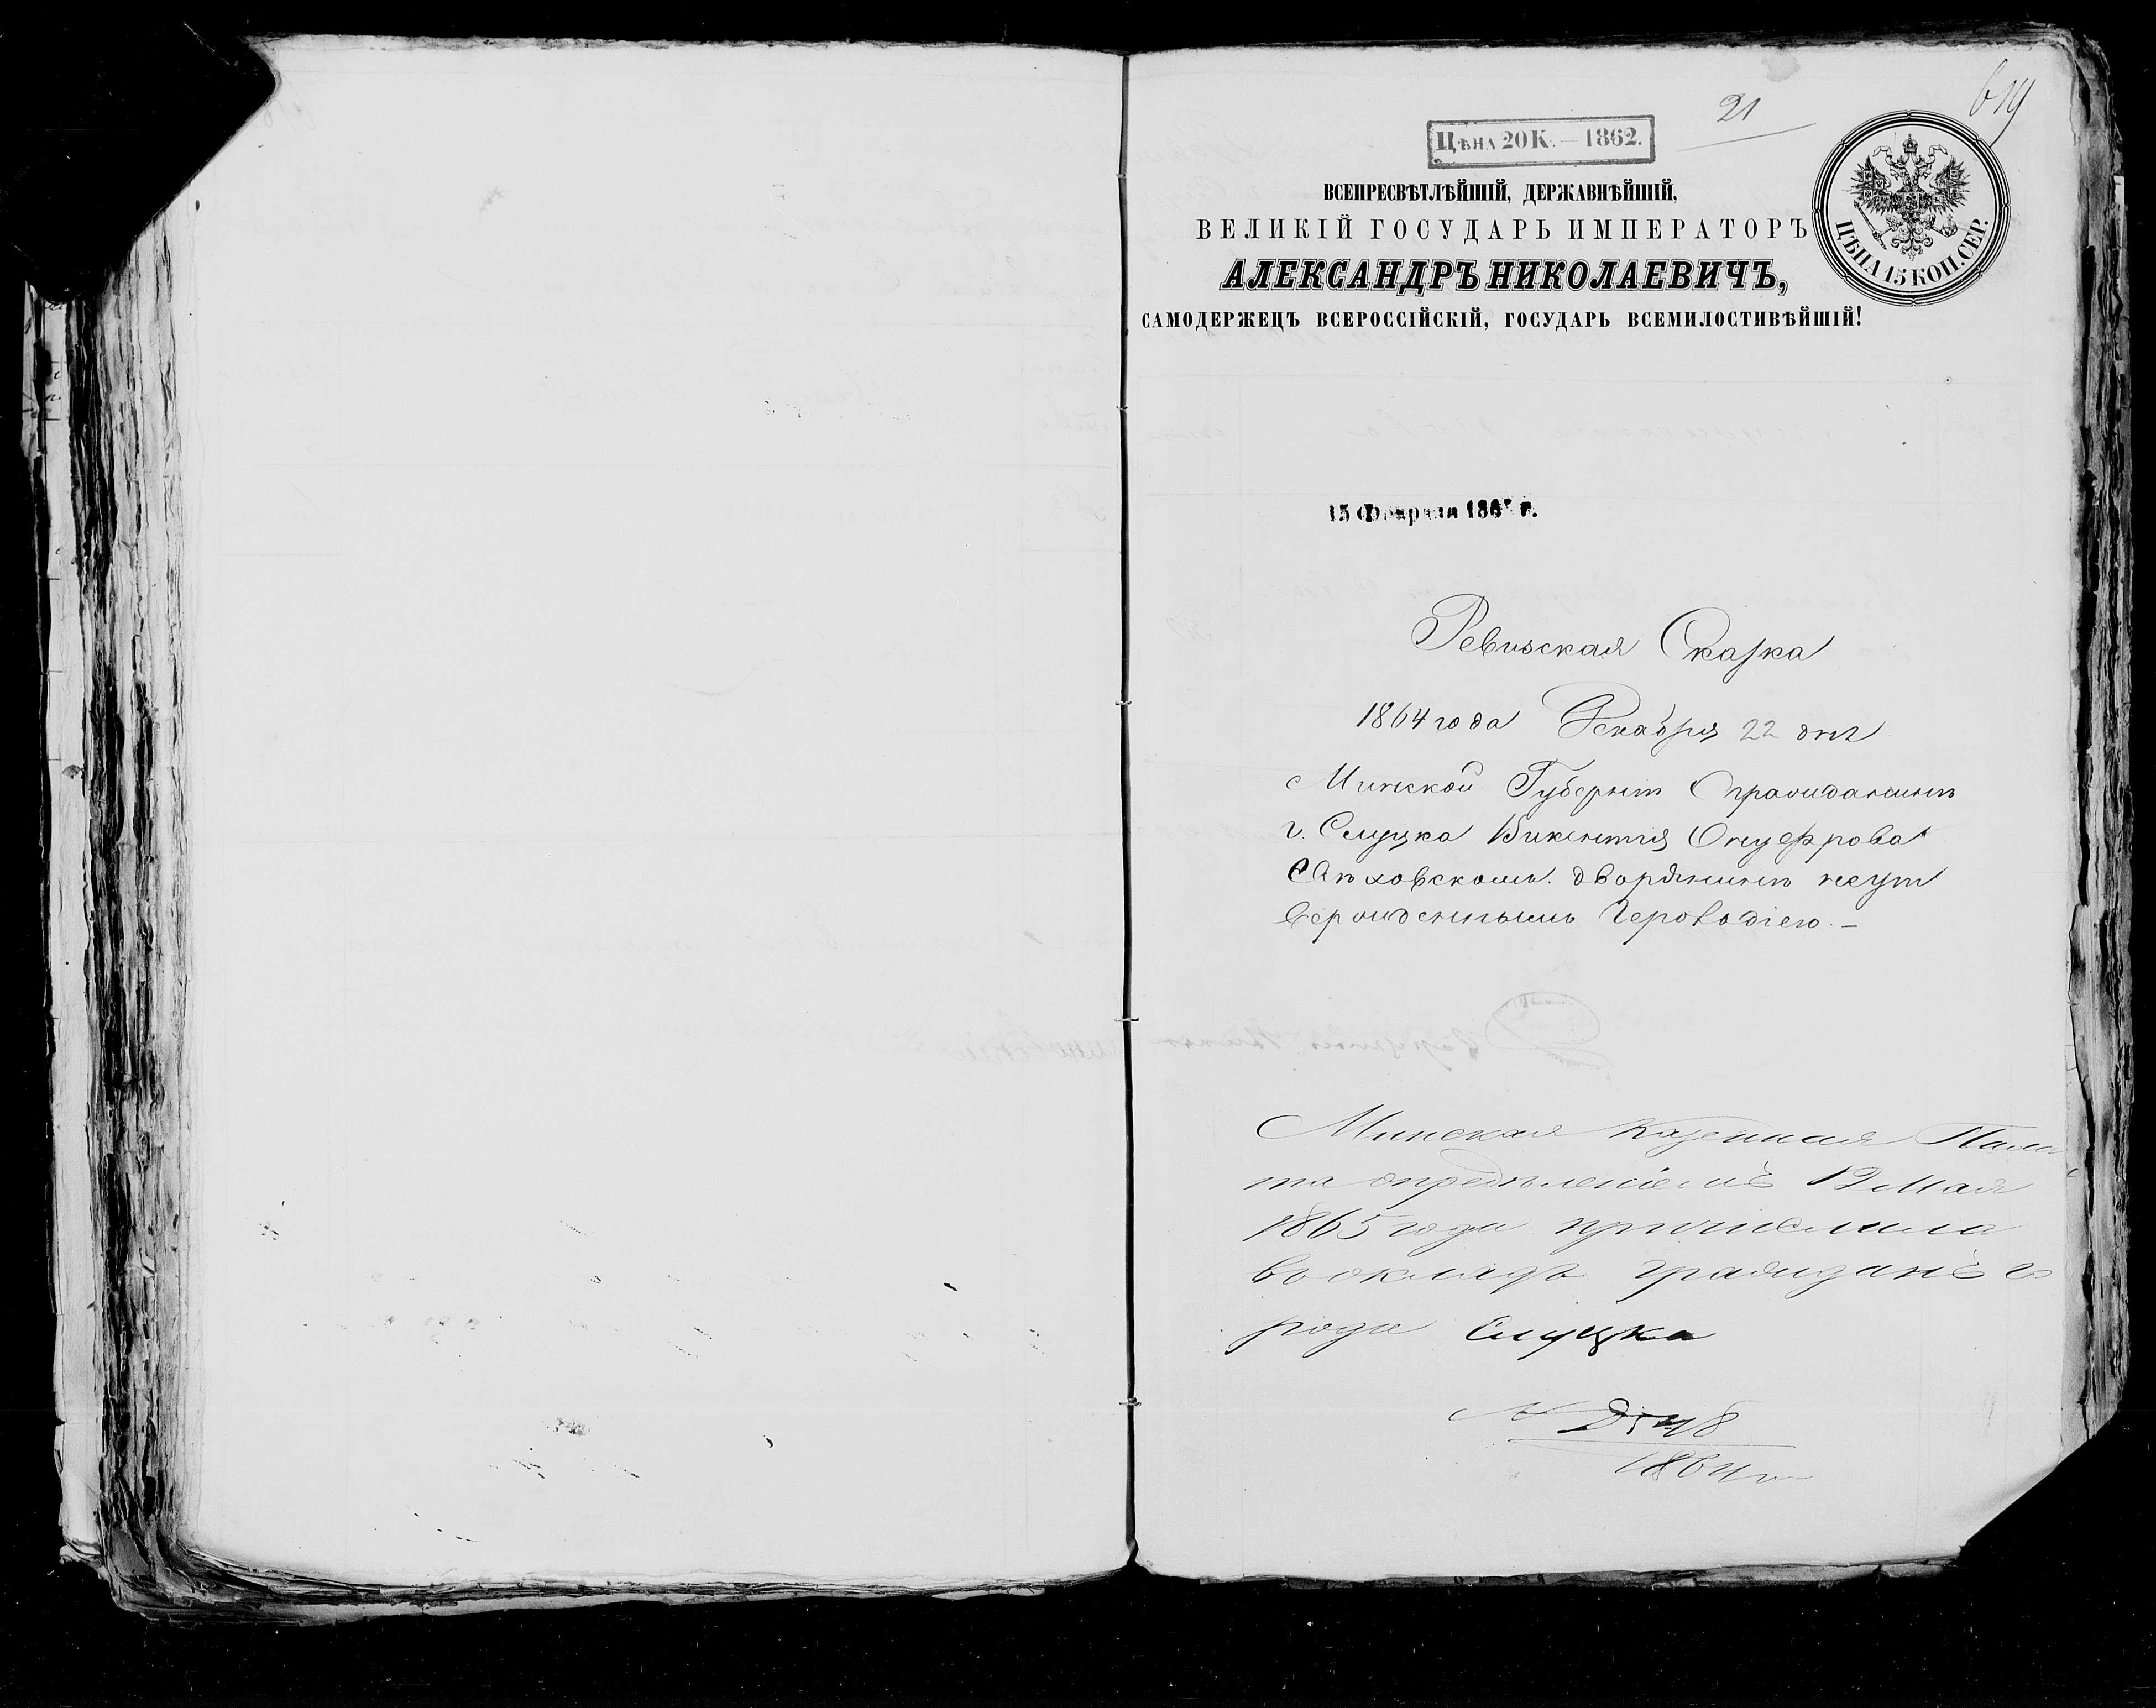 619
21
Цѣна 20 К. — 1862.
ВСЕПРЕСВѢТЛѢЙШІЙ, ДЕРЖАВНѢЙШІЙ,
ВЕЛИКІЙ ГОСУДАРЬ ИМПЕРАТОРЪ
АЛЕКСАНДРЪ НИКОЛАЕВИЧЪ,
САМОДЕРЖЕЦЪ ВСЕРОССІЙСКІЙ, ГОСУДАРЬ ВСЕМИЛОСТИВѢЙШІЙ!
ЦѢНА 15 КОП. СЕР.
15 Февраля 186 г.
Ревизская Сказка
1864 года Декабря 22 дня
Минской Губерніи Гражданинъ
г. Слуцка Викентія Онуфрова
дворянинъ неут
вержденнымъ Герольдіею. —
Минская Казенная Пала
та опредѣленіемъ 12 Мая
1865 года причислила
въ окладъ гражданъ го
рода Слуцка
№
1864 г.